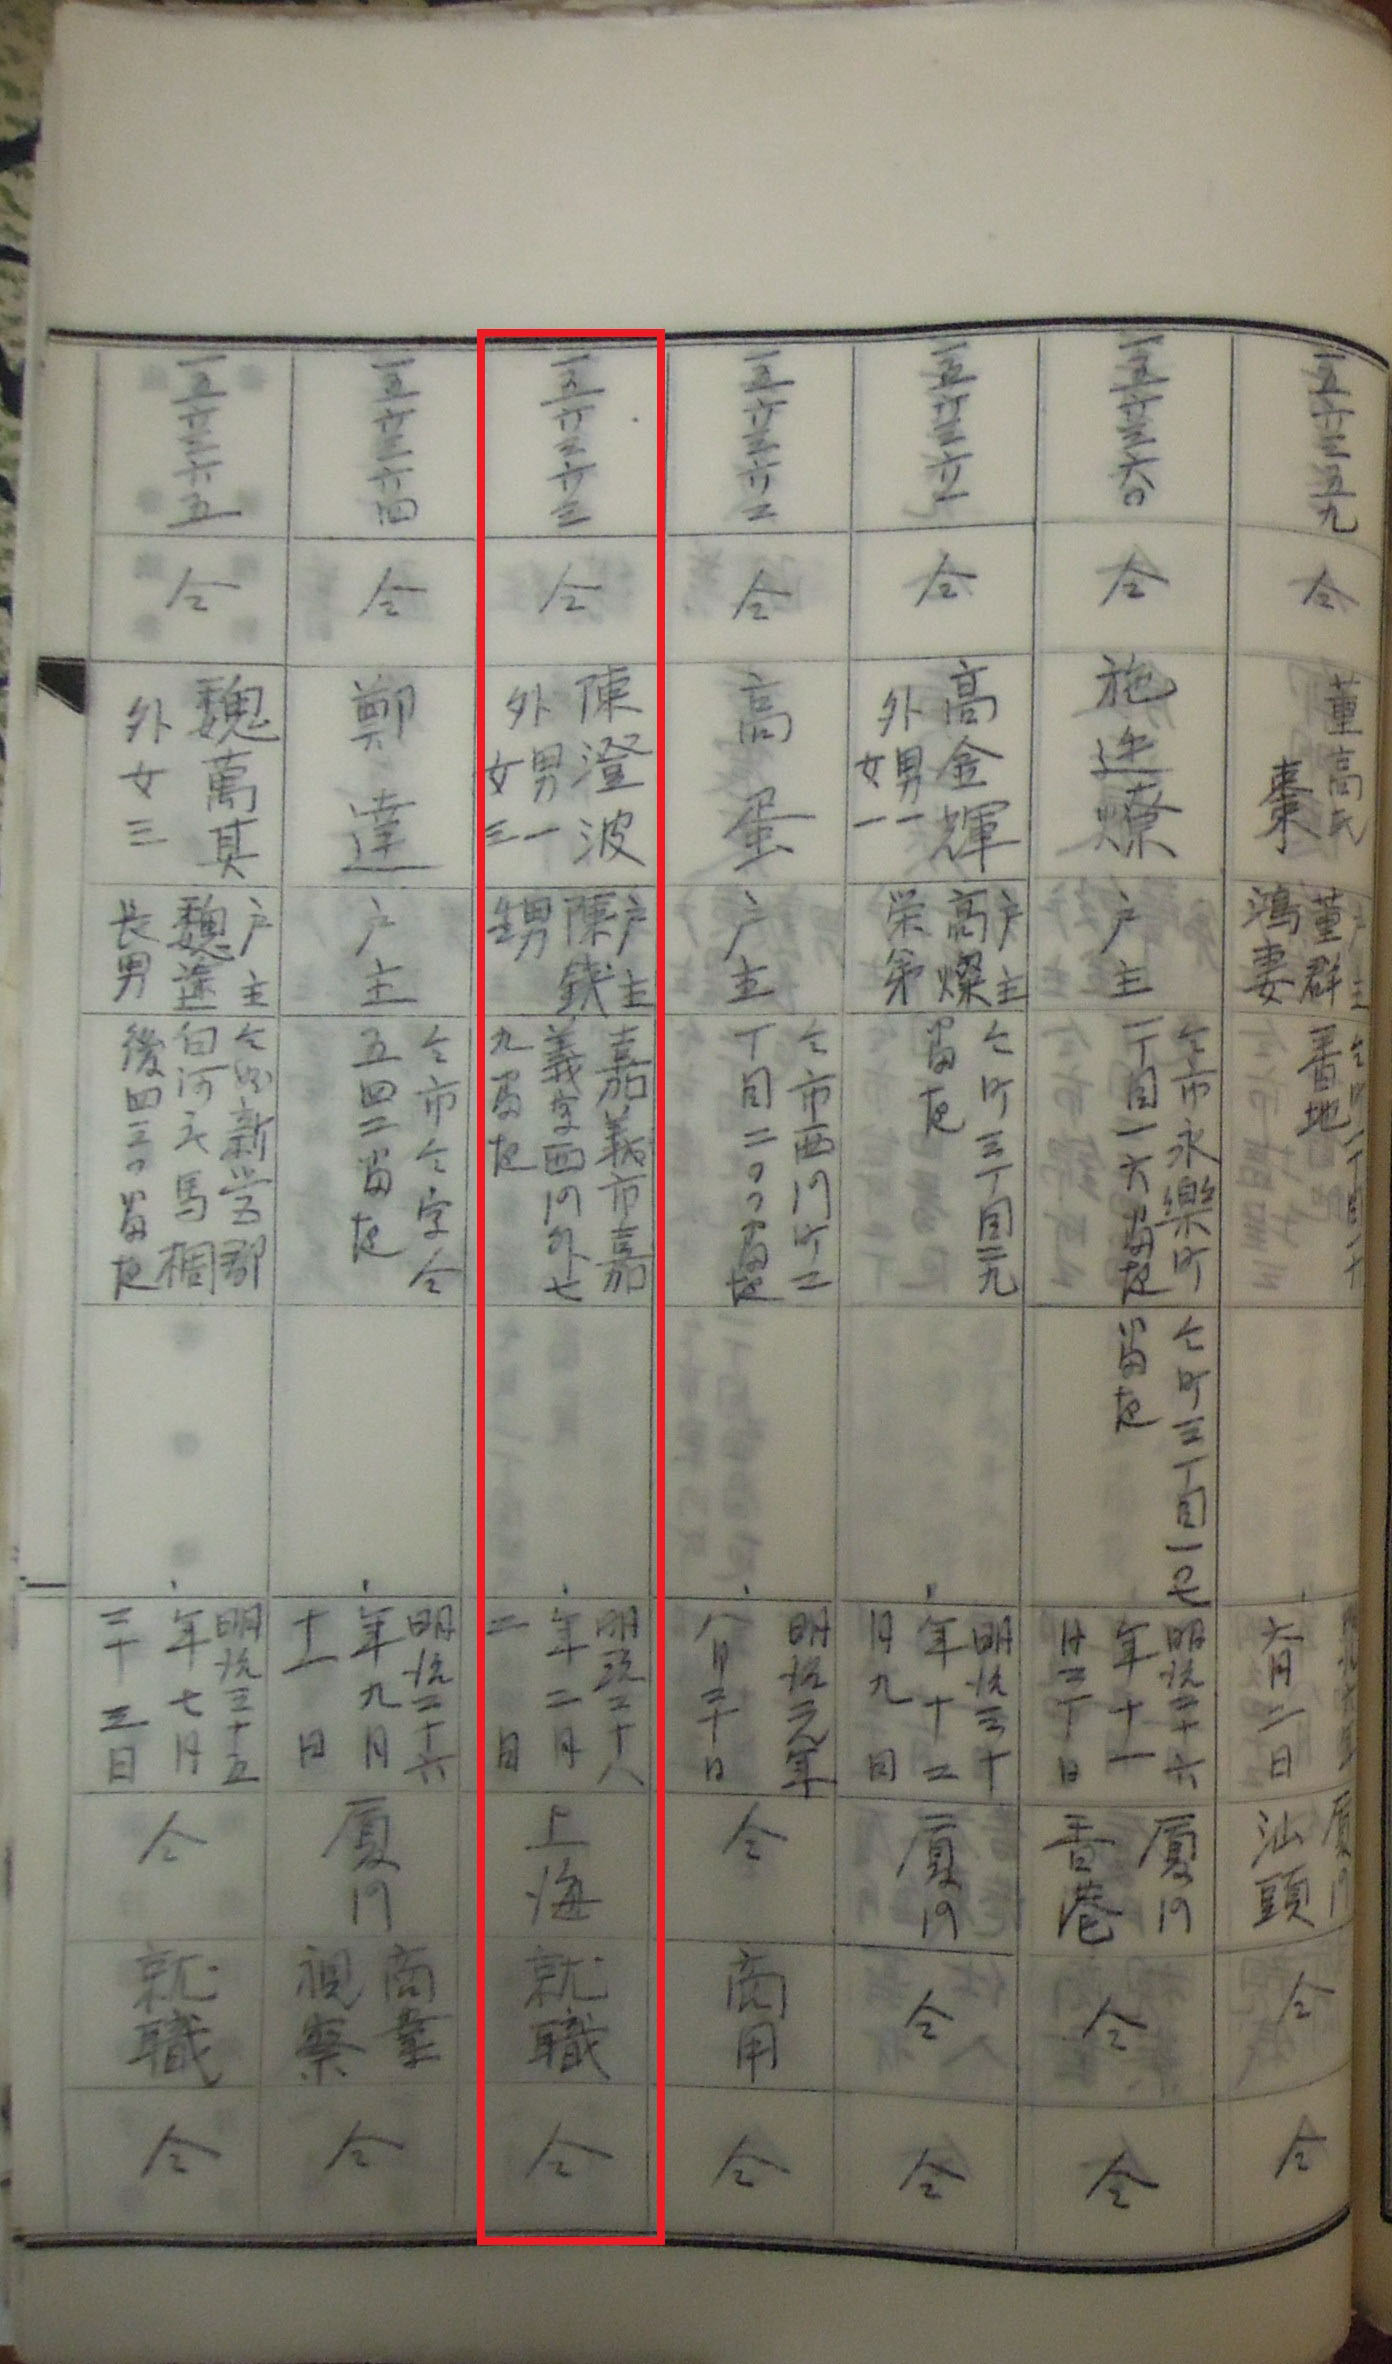 一五六三五九
仝
董高氏
棗
戶主
董群
鴻妻
番地
六月二日
厦门
汕頭
仝
仝
一五六三六〇
仝
施
燎
戶主
仝市永樂町
一丁目一六番地
仝町三丁目一七
番地
明治二十六
年十一
廿二丁日
厦门
香港
仝
仝
一五六三六一
仝
高金輝
外男一
女一
戶主
高燦
栄弟
仝町三丁目二九
番地
明治三十
年十二
月九日
厦门
仝
仝
一五六三六二
仝
高蛋
戶主
仝市西门町二
丁目二〇〇番地
明治元年
八月二十日
仝
商用
仝
一五六三六三
仝
陳澄波
外男一
女三
戶主
陳錢
甥
嘉義市嘉
義字西门外七
九番地
明治二十八
年二月
二日
上海
就職
仝
一五六三六四
仝
鄭達
戶主
仝市仝字仝
五四二番地
明治二十六
年九月
十一日
厦门
商業
視察
仝
一五六三六五
仝
魏萬其
外女三
戶主
魏達
長男
仝州新営郡
白河庄馬椆
後四三〇番地
明治三十五
年七月
三十三日
仝
就職
仝